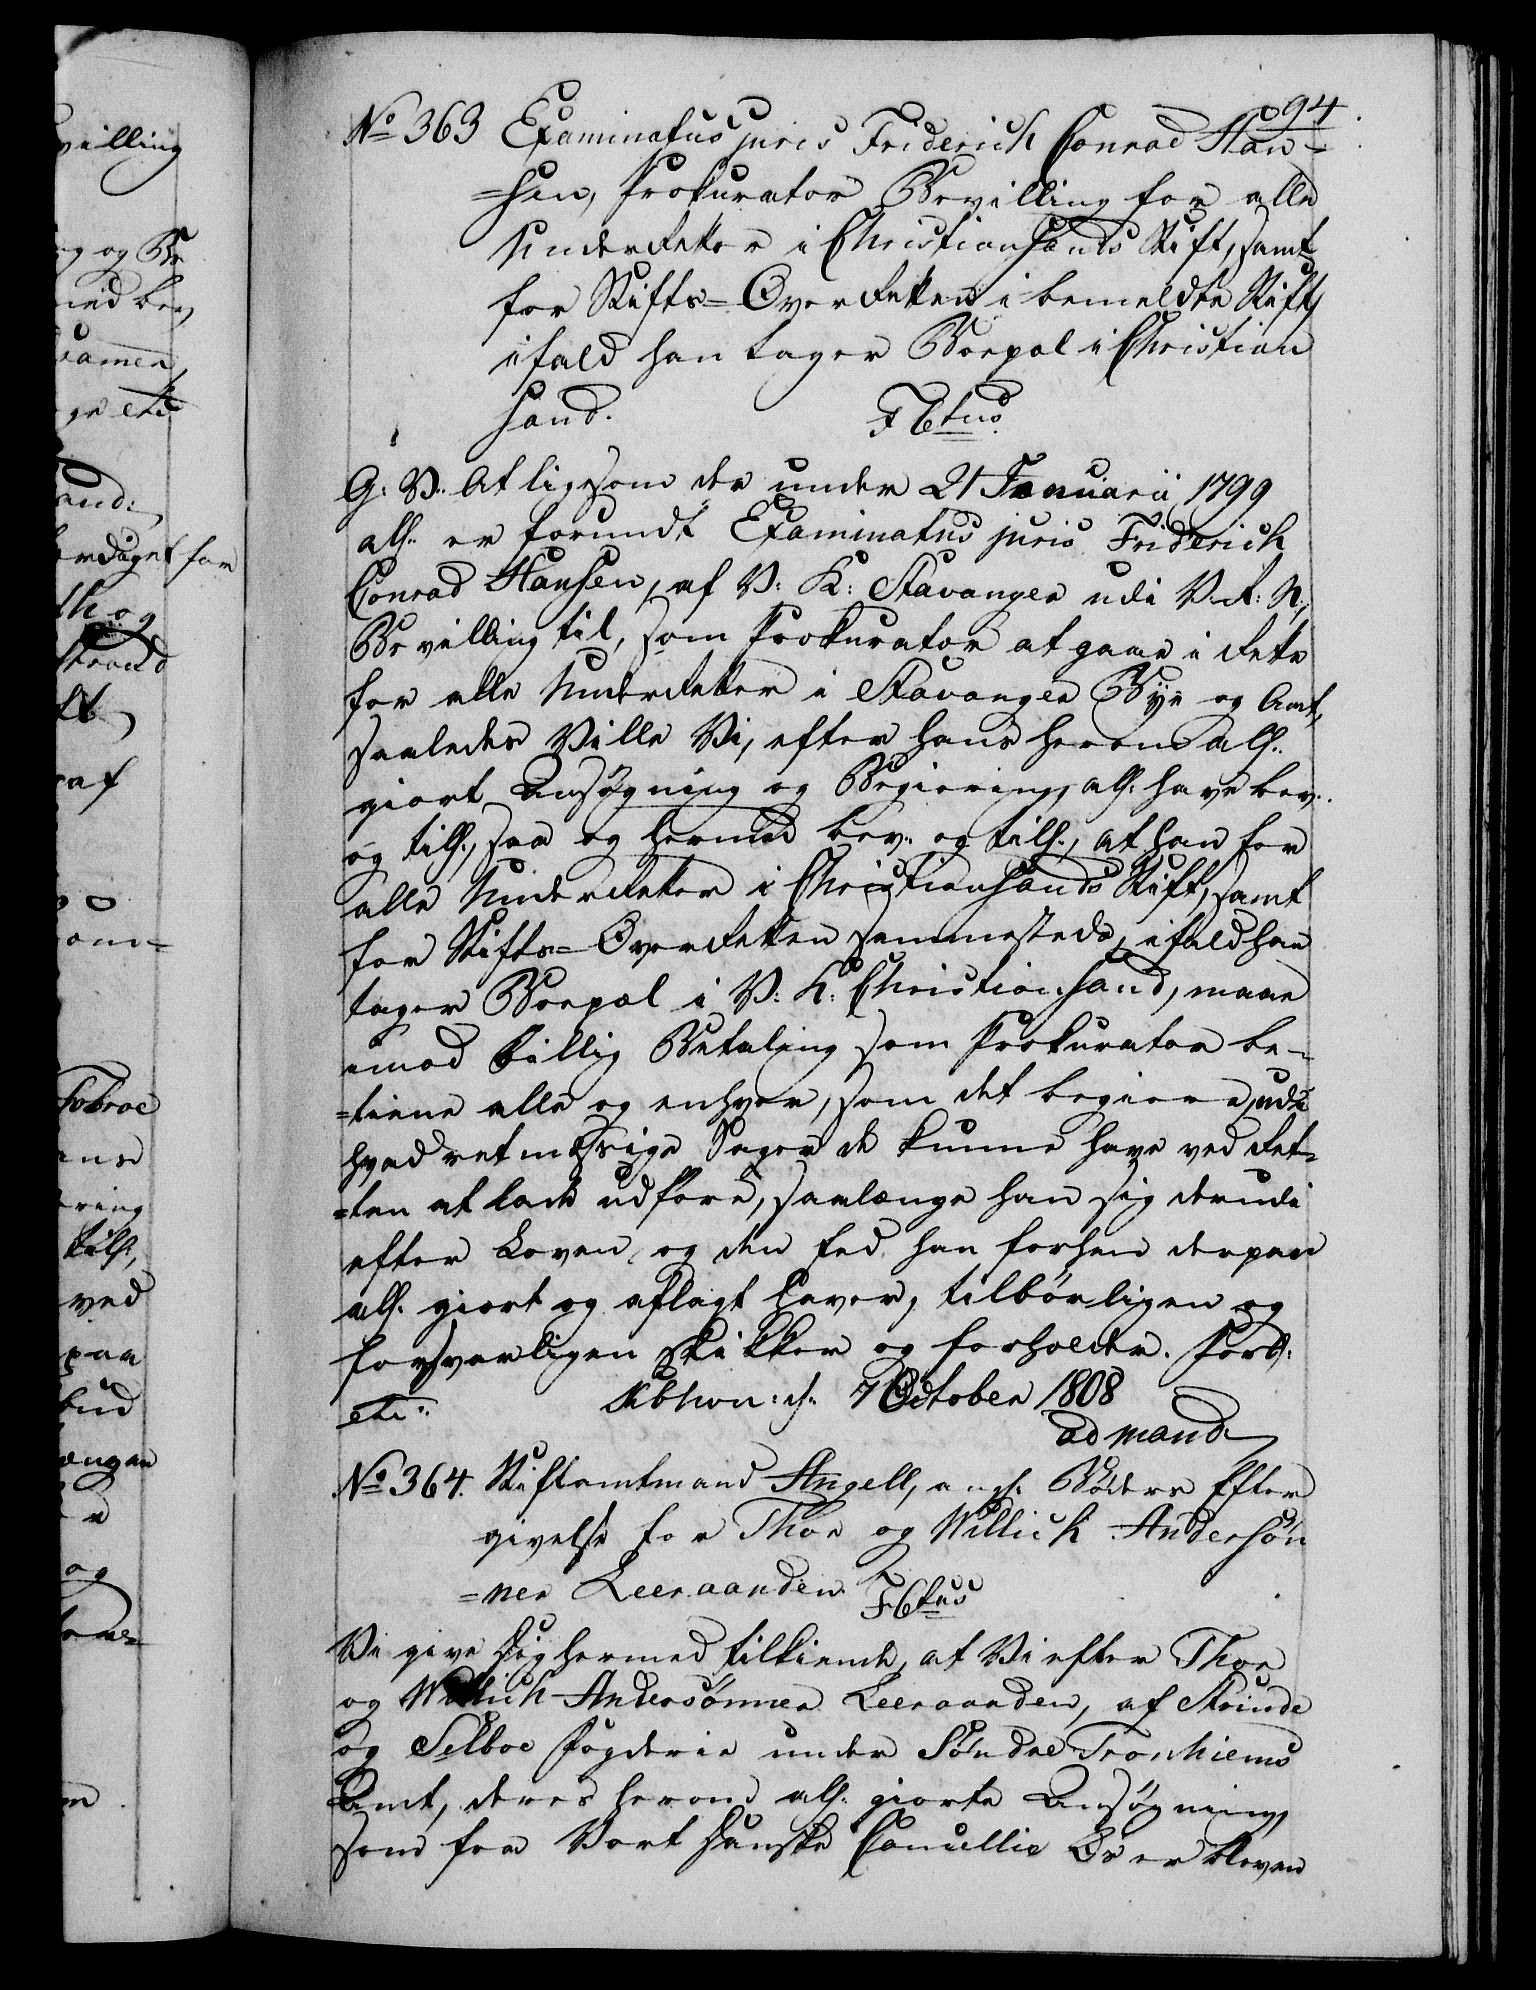 94
No 363 Examinatus juris Friderich Conrad Han-
=sen, Prokurator Bevilling for alle
Underretter i Christiansands Stift, samt
for Stifts-Overretten i bemeldte Stift,
ifald han tager Boepæl i Christian
sand. F 6tus
G: V: At ligesom der under 21 Januarii 1799
alh. er forundt Examinatus juris Friderich
Conrad Hansen, af V: K: Stavanger udi V. R: N:,
Bevilling til, som Prokurator at gaae i Rette
for alle Underretter i Stavanger Bye og Amt,
saaledes Ville Vi, efter hans herom alh.
giort Ansøgning og Begiering, alh. have bev:
og tilh:, saa og hermed bev: og tilh:, at han for
alle Underretter i Christiansands Stift, samt
for Stifts-Overretten sammesteds, ifald han
tager Boepæl i V: K: Christiansand, maae
imod billig Betaling som Prokurator be-
=tiene alle og enhver, som det begierer, udi
hvad retmæssige Sager de kunne have ved Ret-
=ten at lade udføre, saalænge han sig derudi
efter Loven og den Eed han forhen derpaa
alh. giort og aflagt haver, tilbørligen og
forsvarligen skikker og forholder. Forb:
etc: Kbhvn: d: 7 October 1808
ad mand:
No 364. Stiftamtmand Angell, ang: Bøders Efter
givelse for Thor og Willich Andersøn
=ner Leeraanden. F 6tus
Vi give hermed tilkiende, at Vi efter Thor
og Willich Andersønner Leeraanden, af Strinde
og Selboe Fogderie under Søndre Tronhiems
Amt, deres herom alh. giorte Ansøgning,
som for Vort Danske Cancellie Os er bleven